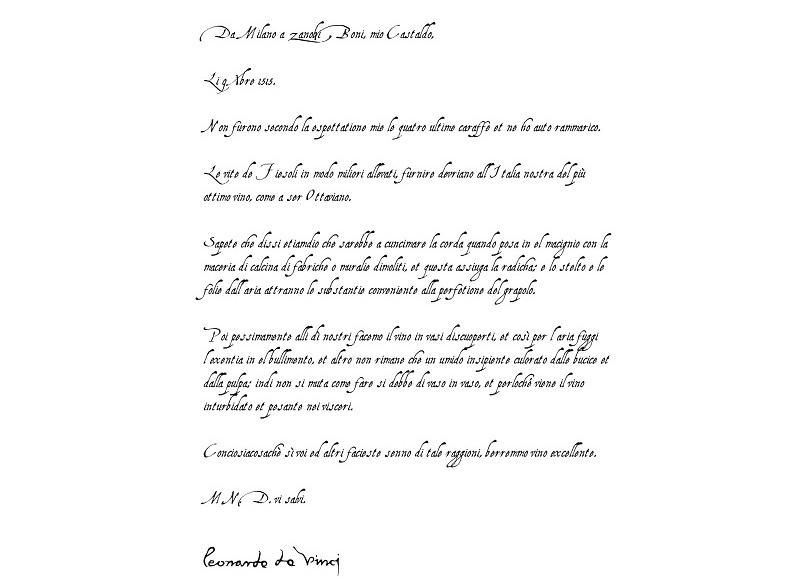 Da Milano a zanobi Boni, mio Castaldo,
Li 9 Xbre 1515.
Non furono secondo la espettatione mie le quatro ultime caraffe et ne ho auto rammarico.
Le vite de Fiesoli in modo miliori allevati, furnire devriano all'Italia nostra del più
ottimo vino, come a ser Ottaviano.
Sapete che dissi etiamdio che sarebbe a cuncimare la corda quando posa in el macignio con la
maceria di calcina di fabriche o muralie dimoliti, et questa assiuga la radicha; e lo stelto e le
folie dall'aria attranno le substantie conveniente alla perfetione del grapolo.
Poi pessimamente alli dì nostri facemo il vino in vasi discuoperti, et così per l'aria fuggi
l'exentia in el bullimento, et altro non rimane che un umido insipiente culorato dalle bucice et
dalla pulpa; indi non si muta come fare si debbe di vaso in vaso, et perloché viene il vino
inturbidato et pesante nei visceri.
Conciosiacosaché sì voi ed altri facieste senno di tale raggioni, berremmo vino excellente.
M N. D. vi salvi.
Leonardo da Vinci